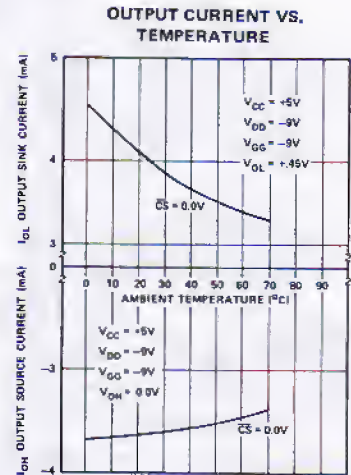 OUTPUT CURRENT VS.
TEMPERATURE
I_OL OUTPUT SINK CURRENT (mA)
5
4
3
V_CC = +5V
V_DD = -9V
V_GG = -9V
V_OL = +.45V
CS = 0.0V
0 10 20 30 40 50 60 70 80 90
AMBIENT TEMPERATURE (°C)
I_OH OUTPUT SOURCE CURRENT (mA)
0
-3
-4
V_CC = +5V
V_DD = -9V
V_GG = -9V
V_OH = 0.0V
CS = 0.0V